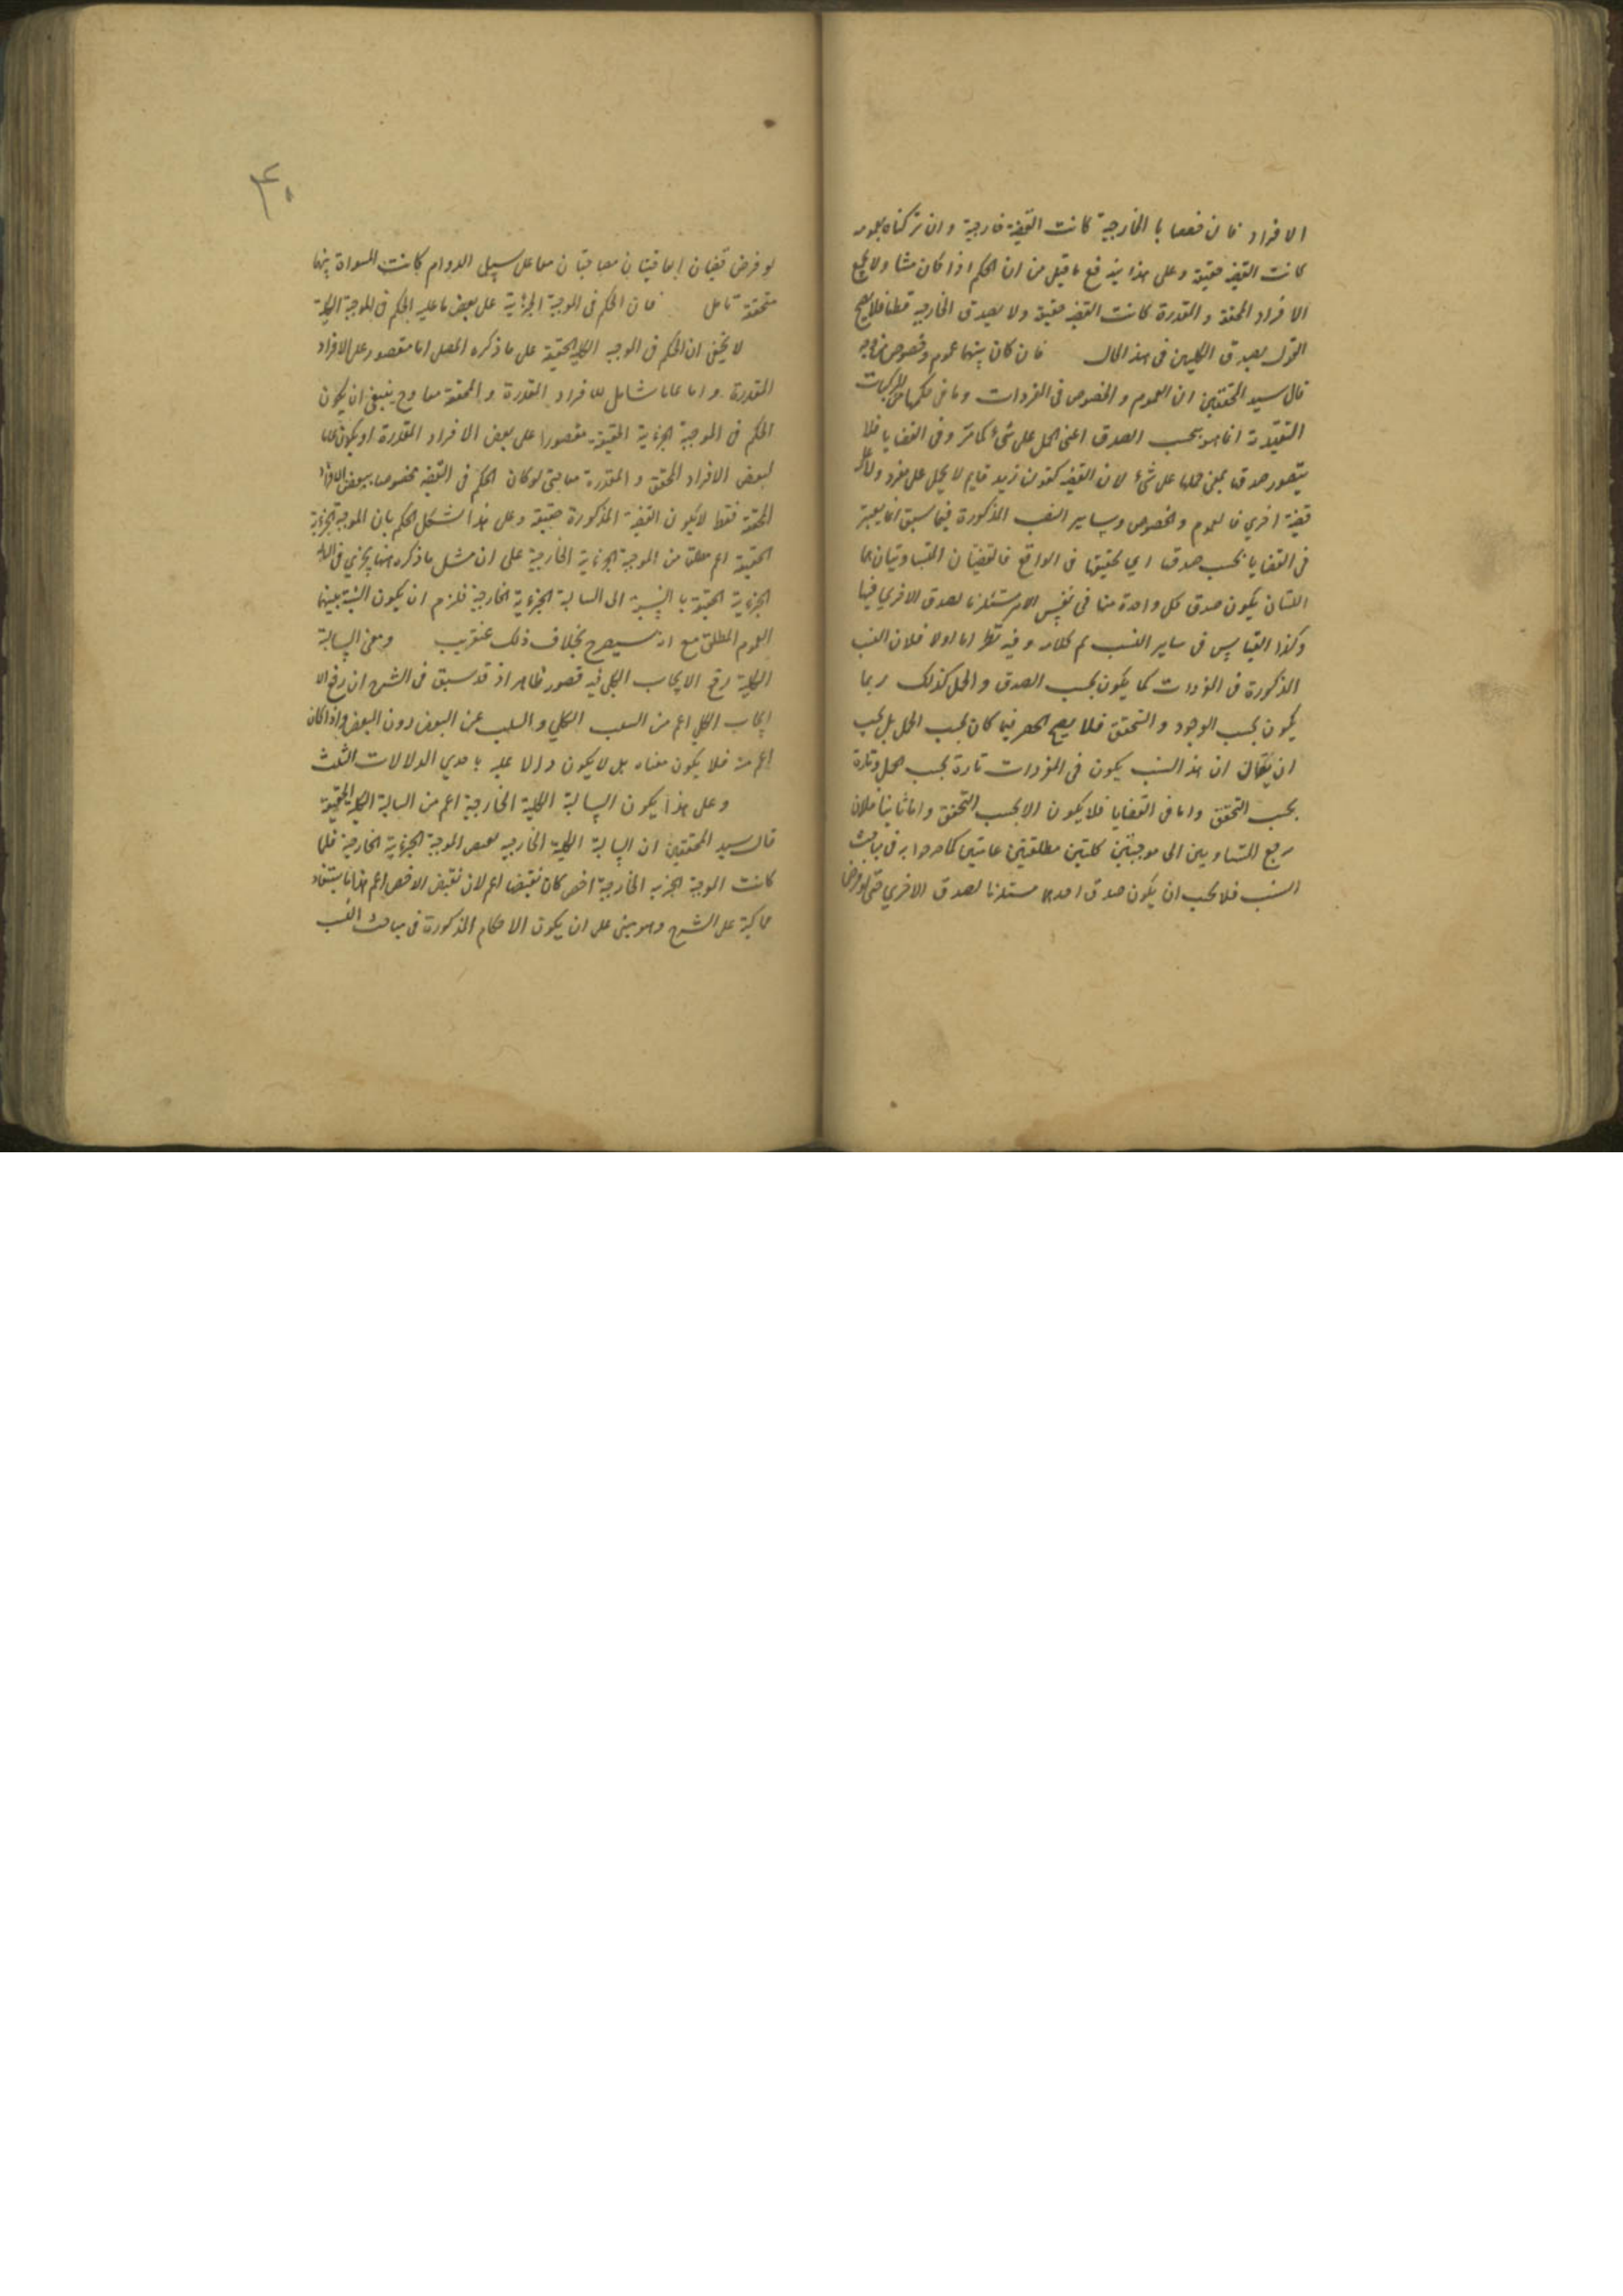 الافراد فان خصصنا بالخارجية كانت القضية خارجية وان تركناه بعمومه
كانت القضية حقيقية وعلى هذا يندفع ما قيل من ان الحكم اذا كان متناولا لجميع
الافراد المحققة والمقدرة كانت القضية حقيقية ولا يصدق الخارجية قطعا فلا يصح
القول بصدق الكليتين فى هذا الحال فان كان بينهما عموم وخصوص من وجه
قال سيد المحققين ان العموم والخصوص فى المفردات وما فى حكمها من المركبات
التقييدية انما هو بحسب الصدق اعنى الحمل على شئ كما مر وفى القضايا فلا
يتصور صدقها بمعنى حملها على شئ لان القضية كقولنا زيد قايم لا يحمل على مفرد ولا على
قضية اخري فالعموم والخصوص وساير النسب المذكورة فيما سبق انما يعتبر
فى القضايا بحسب صدقها اي تحققها فى الواقع فالقضيتان المتساويتان هما
اللتان يكون صدق كل واحدة منها فى نفس الامر مستلزما لصدق الاخري فيها
وكذا القياس فى ساير النسب تم كلامه وفيه نظر اما اولا فلان النسب
المذكورة فى المفردات كما يكون بحسب الصدق والحمل كذلك ربما
يكون بحسب الوجود والتحقق فلا يصح الحصر فيما كان بحسب الحمل بل يجب
ان يقال ان هذا النسب يكون فى المفردات تارة بحسب الحمل وتارة
بحسب التحقق واما فى القضايا فلا يكون الا بحسب التحقق واما ثانيا فلان
مرجع المتساويين الى موجبتين كليتين مطلقتين عامتين كما صرحوا به فى مباحث
النسب فلا يجب ان يكون صدق احدهما مستلزما لصدق الاخري حتى لو فرض
٤٠
لو فرض قضيتان اتفاقيتان معا على سبيل الدوام كانت المساواة بينهما
متحققة تامل فان الحكم فى الموجبة الجزئية على بعض ما عليه الحكم فى الموجبة الكلية
لا يخفى ان الحكم فى الموجبه الكلية الحقيقية على ما ذكره المصل اما مقصور على الافراد
المقدرة واما عاما شامل للافراد المقدرة والمحققة معا وح ينبغى ان يكون
الحكم فى الموجبة الجزئية الحقيقية مقصورا على بعض الافراد المقدرة او يكون شاملا
لبعض الافراد المحقق والمقدرة معا حتى لو كان الحكم فى القضية مخصوصا ببعض الافراد
المحققة فقط لا يكون القضية المذكورة حقيقية وعلى هذا اشكل الحكم بان الموجبة الجزئية
الحقيقية اعم مطلقا من الموجبة الجزئية الخارجية على ان مثل ما ذكره ههنا يجري فى السالبة
الجزئية الحقيقية بالنسبة الى السالبة الجزئية الخارجية فلزم ان يكون النسبة بينهما
العموم المطلق مع انه سيصرح بخلاف ذلك عنقريب ومعنى السالبة
الكلية رفع الايجاب الكلى فيه قصور ظاهر اذ قد سبق فى الشرح ان رفع الا
ايجاب الكلي اعم من السلب الكلي والسلب عن البعض دون البعض واذا كان
اعم منه فلا يكون معناه بل لا يكون دالا عليه باحدي الدلالات الثلث
وعلى هذا يكون السالبة الكلية الخارجية اعم من السالبة الكلية الحقيقية
قال سيد المحققين ان السالبة الكلية الخارجية نقيض الموجبة الجزئية الخارجية فلما
كانت الموجبة الجزية الخارجية اخص كان نقيضها اعم لان نقيض الاخص اعم هذا ما يستفاد
محاكية على الشرح وهو مبنى على ان يكون الاحكام المذكورة فى مباحث النسب